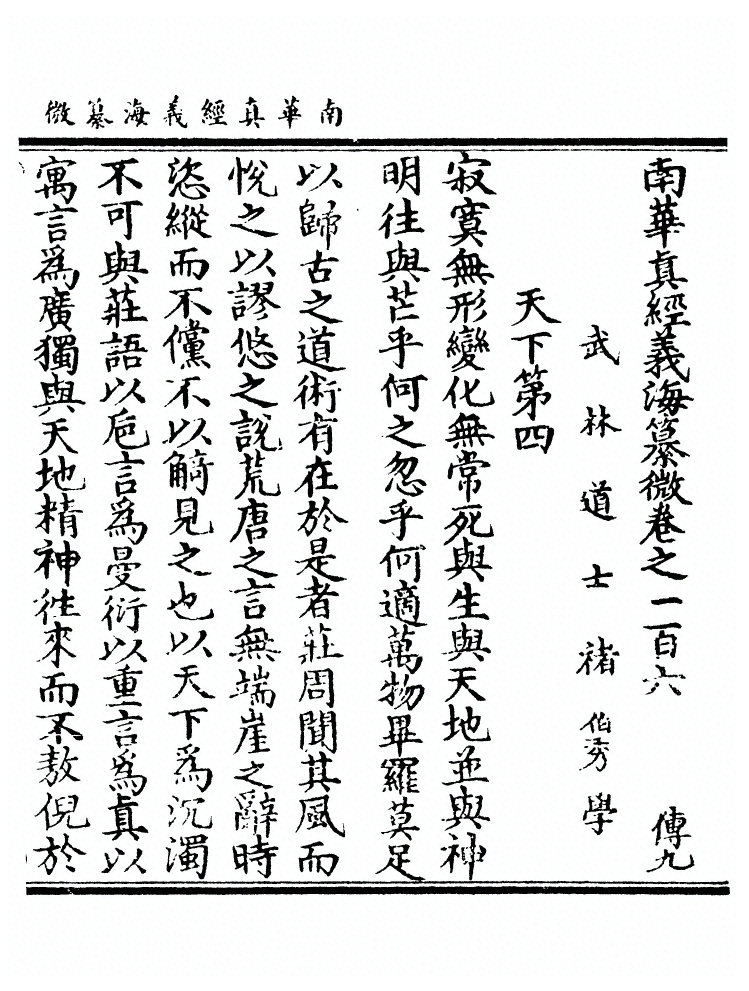 南華真經義海纂微
南華真經義海纂微卷之一百六　傳九
武林道士褚伯秀學
天下第四
寂寞無形變化無常死與生與天地並與神
明往與芒乎何之忽乎何適萬物畢羅莫足
以歸古之道術有在於是者莊周聞其風而
悅之以謬悠之說荒唐之言無端崖之辭時
恣縱而不儻不以觭見之也以天下為沉濁
不可與莊語以巵言為曼衍以重言為真以
寓言為廣獨與天地精神往來而不敖倪於